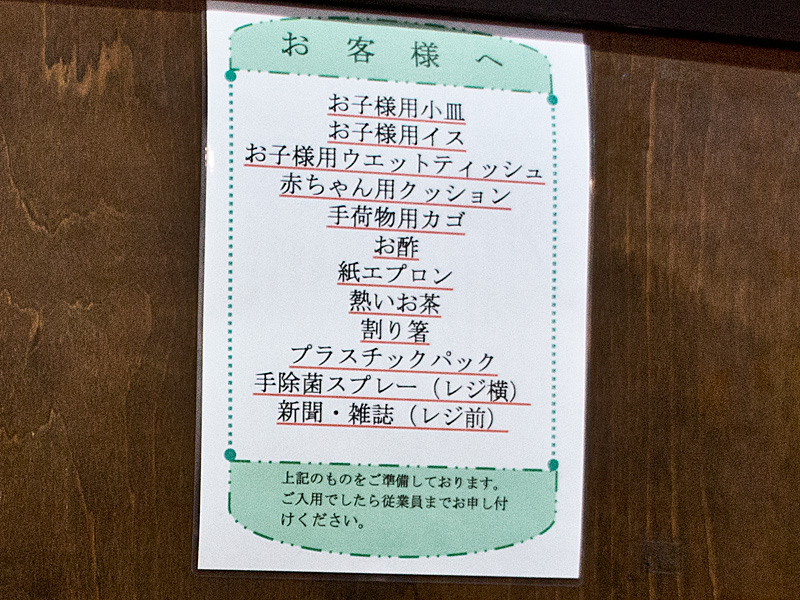 お客様へ
お子様用小皿
お子様用イス
お子様用ウエットティッシュ
赤ちゃん用クッション
手荷物用カゴ
お酢
紙エプロン
熱いお茶
割り箸
プラスチックパック
手除菌スプレー（レジ横）
新聞・雑誌（レジ前）
上記のものをご準備しております。
ご入用でしたら従業員までお申し付
けください。